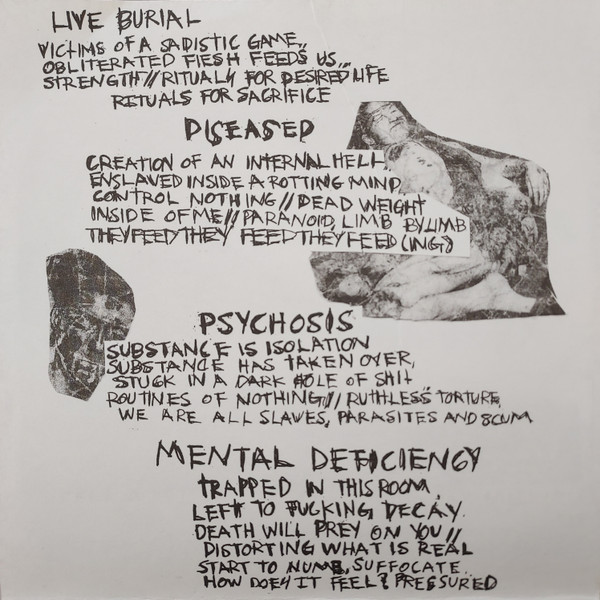 LIVE BURIAL
VICTIMS OF A SADISTIC GAME,,
OBLITERATED FLESH FEEDS US,,,
STRENGTH // RITUALY FOR DESIRED LIFE
RITUALS FOR SACRIFICE
DISEASED
CREATION OF AN INTERNAL HELL,
ENSLAVED INSIDE A ROTTING MIND,
CONTROL NOTHING // DEAD WEIGHT
INSIDE OF ME // PARANOID, LIMB BY LIMB
THEY FEED THEY FEED THEY FEED (ING?)
PSYCHOSIS
SUBSTANCE IS ISOLATION
SUBSTANCE HAS TAKEN OVER,
STUCK IN A DARK HOLE OF SHIT
ROUTINES OF NOTHING // RUTHLESS TORTURE,
WE ARE ALL SLAVES, PARASITES AND SCUM
MENTAL DEFICIENCY
TRAPPED IN THIS ROOM,
LEFT TO FUCKING DECAY.
DEATH WILL PREY ON YOU //
DISTORTING WHAT IS REAL
START TO NUMB, SUFFOCATE.
HOW DOES IT FEEL? PRESSURED